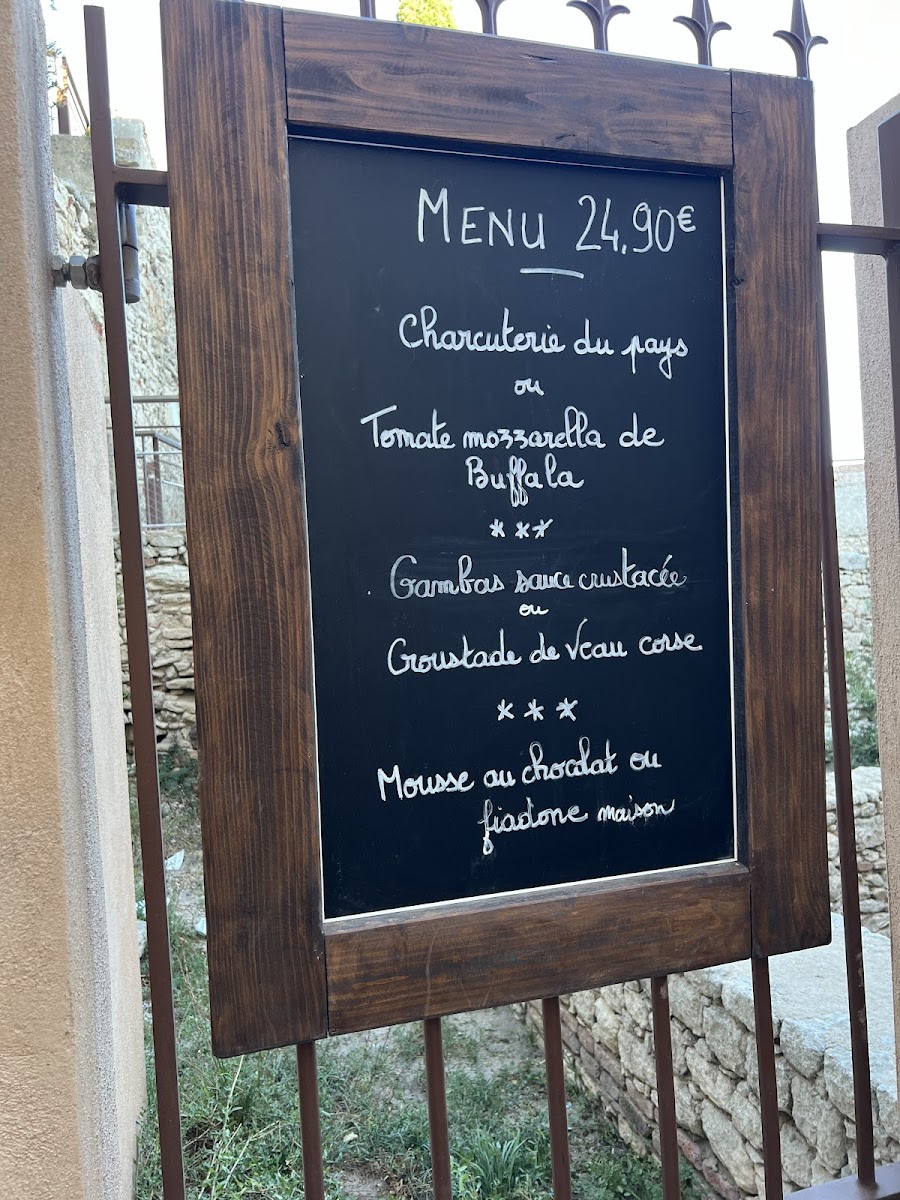 MENU 24.90€
Charcuterie du pays
ou
Tomate mozzarella de
Buffala
***
Gambas sauce crustacée
ou
Croustade de Veau corse
***
Mousse au chocolat ou
fiadone maison